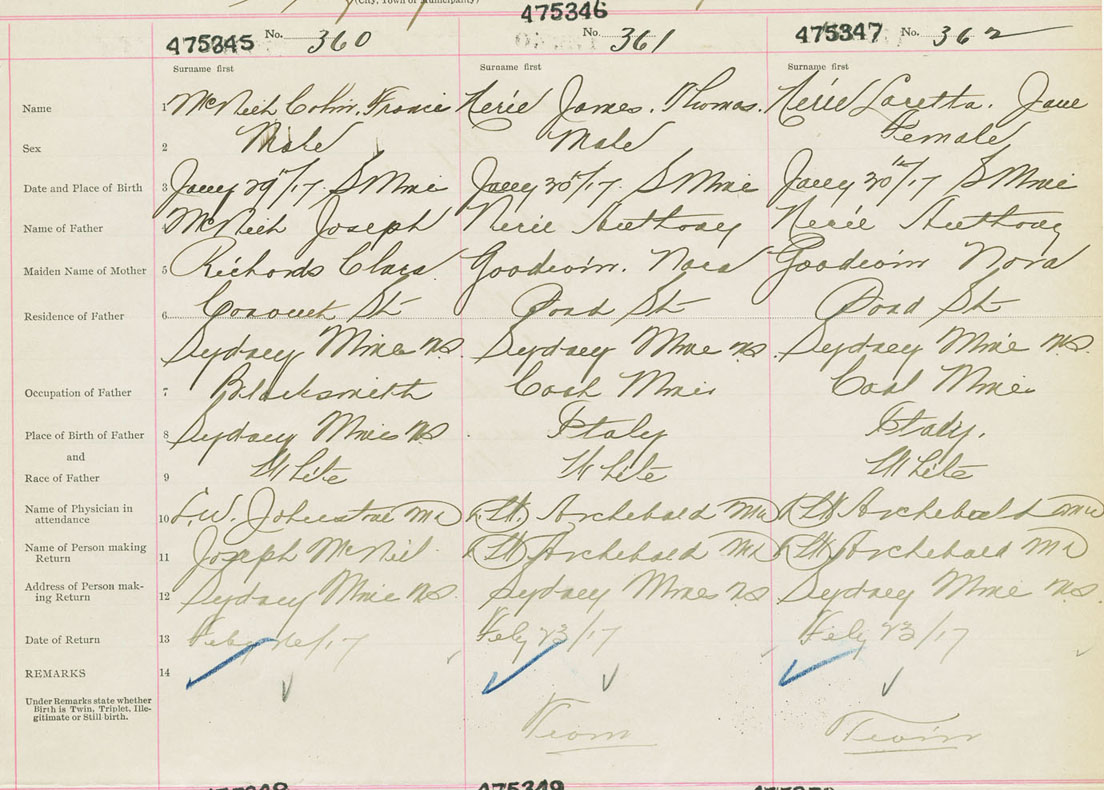 (City, Town or Municipality)
475345 No. 360 475346 No. 361 475347 No. 362
Surname first Surname first Surname first
Name 1 McNeil Colin. Francis Nerie James. Thomas. Nerie Loretta. Jane
Sex 2 Male Male Female
Date and Place of Birth 3 Jany 29/17 S Mine Jany 30/17. S Mine Jany 30/17 S Mine
Name of Father 4 McNeil Joseph Nerie Anthony Nerie Anthony
Maiden Name of Mother 5 Richards Clara Goodwin. Nora Goodwin Nora
Residence of Father 6 St St St
Sydney Mine NS Sydney Mine NS Sydney Mine NS.
Occupation of Father 7 Blacksmith Coal Miner Coal Miner
Place of Birth of Father 8 Sydney Mines NS Italy Italy.
and
Race of Father 9 White White White
Name of Physician in attendance 10 L.W. Johnstone MD Archibald MD Archibald MD
Name of Person making Return 11 Joseph McNeil. Archibald MD Archibald MD
Address of Person mak-ing Return 12 Sydney Mine NS. Sydney Mines NS Sydney Mine NS.
Date of Return 13 Feby 26/17 Feby 23/17 Feby 23/17
REMARKS 14
Under Remarks state whether Birth is Twin, Triplet, Ille-gitimate or Still birth.
Twin Twin
475349